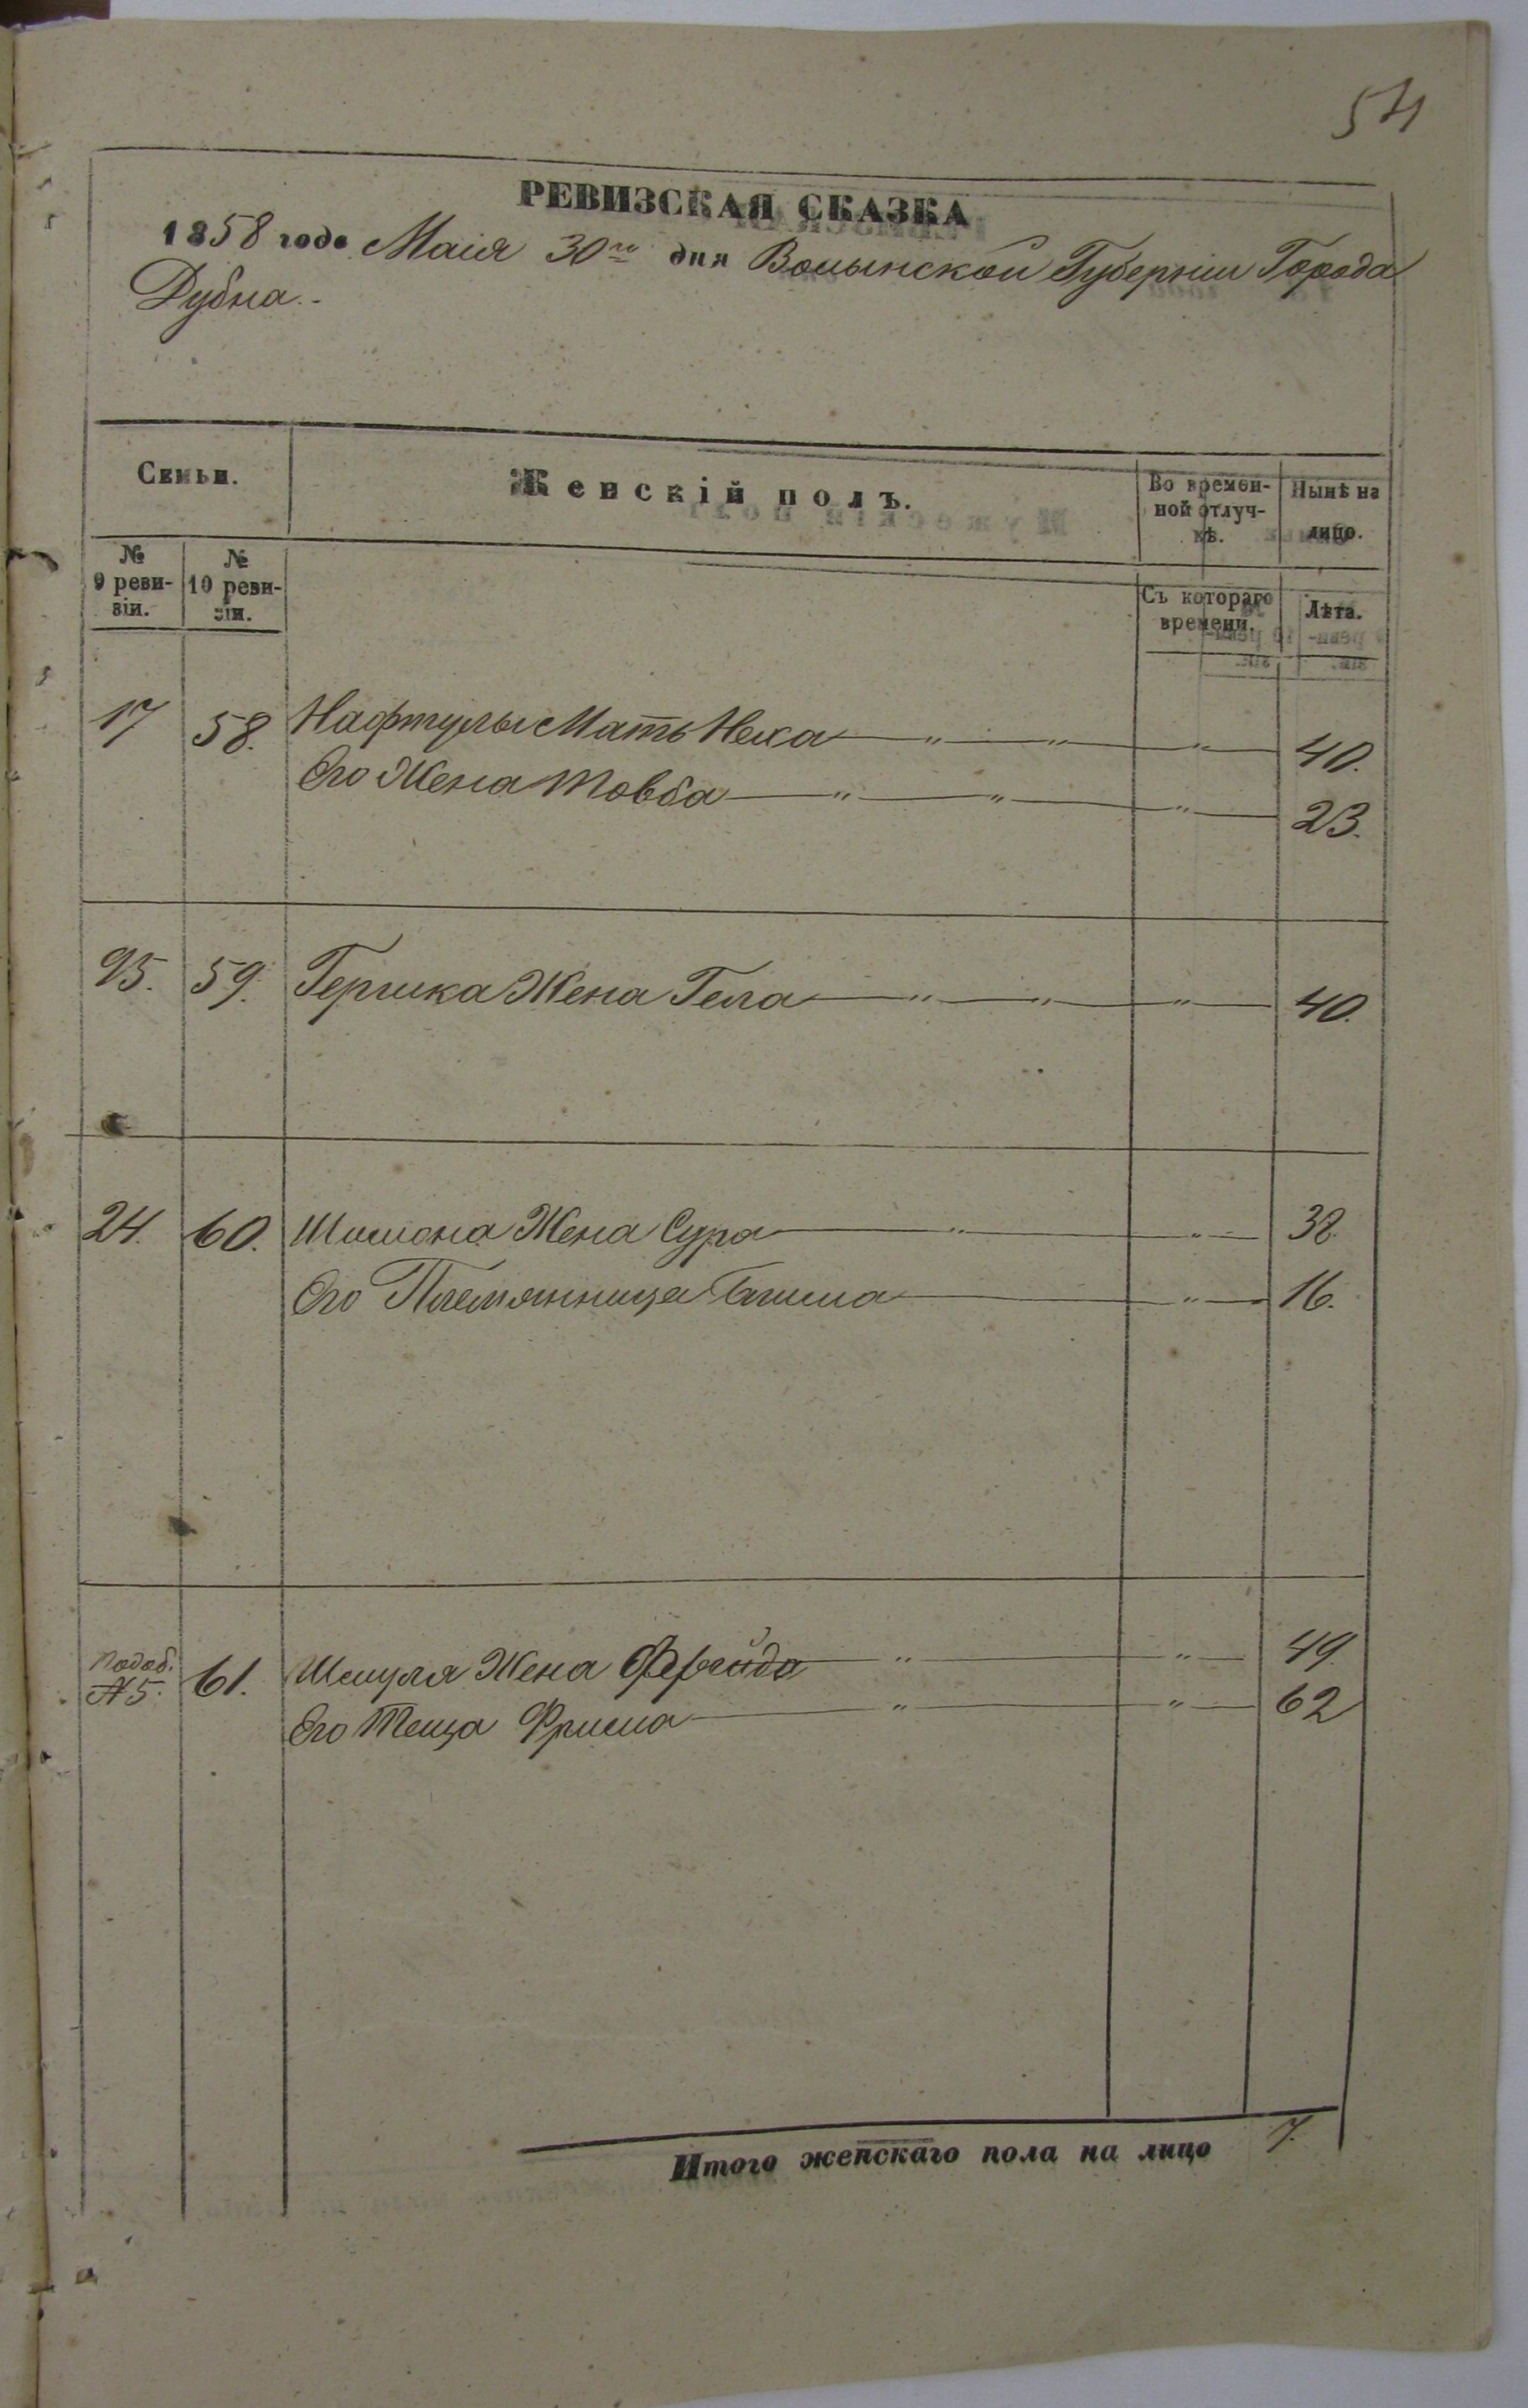 54
РЕВИЗСКАЯ СКАЗКА
1858 года Маія 30го дня Волынской Губерніи Города
Дубна.-
Семьи.
Женскій полъ.
Во времен-
ной отлуч-
кѣ.
Нынѣ на
лицо.
№
9 реви-
зіи.
№
10 реви-
зіи.
Съ котораго
времени.
Лѣта.
17 58. Нафтулы Мать Неха 40.
Его Жена Товба 23.
95. 59. Гершка Жена Гела 40.
24. 60. Шимона Жена Сура 38.
Его Племянница 16.
подоб.
№5. 61. Шмуля Жена Фрейда 49.
Его Теща Фрима 62
Итого женскаго пола на лицо 7.